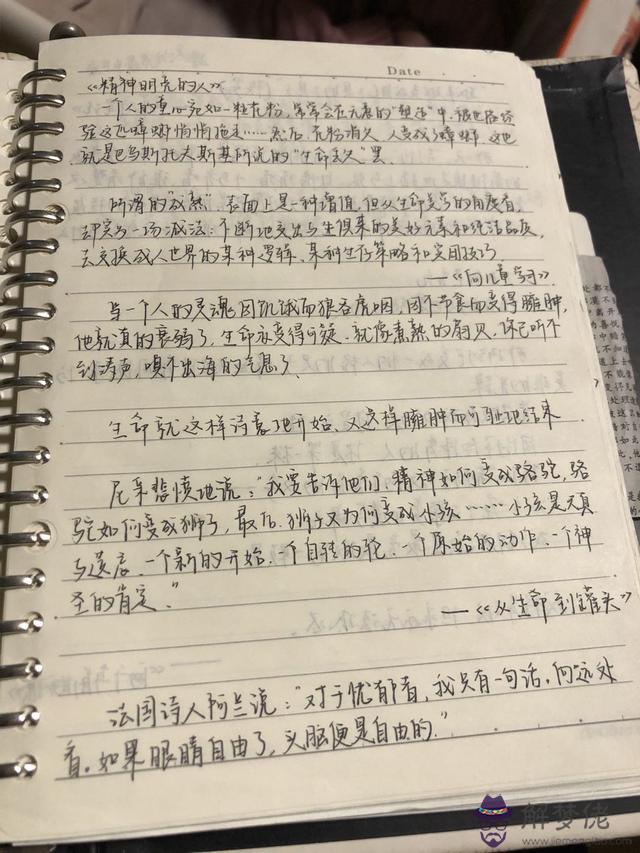 Date
《精神明亮的人》
一个人的童心宛如一粒花粉，常常会在无意的“塑造”中，被世俗经
验这匹蟑螂悄悄拖走……然后，花粉消失，人变成了蟑螂。这也
就是巴乌斯托夫斯基所说的“生命丢失”罢
所谓的“成熟”，表面上是一种增值，但从生命美学的角度看，
却实为一场减法：不断地交出与生俱来的美好元素和纯洁品质，
去交换成人世界的某种逻辑、某种生存策略和实用技巧
——《向儿童学习》
当一个人的灵魂因饥饿而狼吞虎咽，因不节食而变得臃肿，
他就真的衰弱了，生命亦变得可疑。就像煮熟的扇贝，你已听不
到涛声，嗅不出海的气息了。
生命就这样诗意地开始，又这样臃肿而可耻地结束
尼采悲愤地说：“我要告诉他们，精神如何变成骆驼，骆
驼如何变成狮子，最后，狮子又为何变成小孩……小孩是天真
与遗忘，一个新的开始，一个自转的轮，一个原始的动作，一个神
圣的肯定。”
——《从生命到罐头》
法国诗人阿兰说：“对于忧郁者，我只有一句话，向远处
看。如果眼睛自由了，头脑便是自由的。”
解梦佬